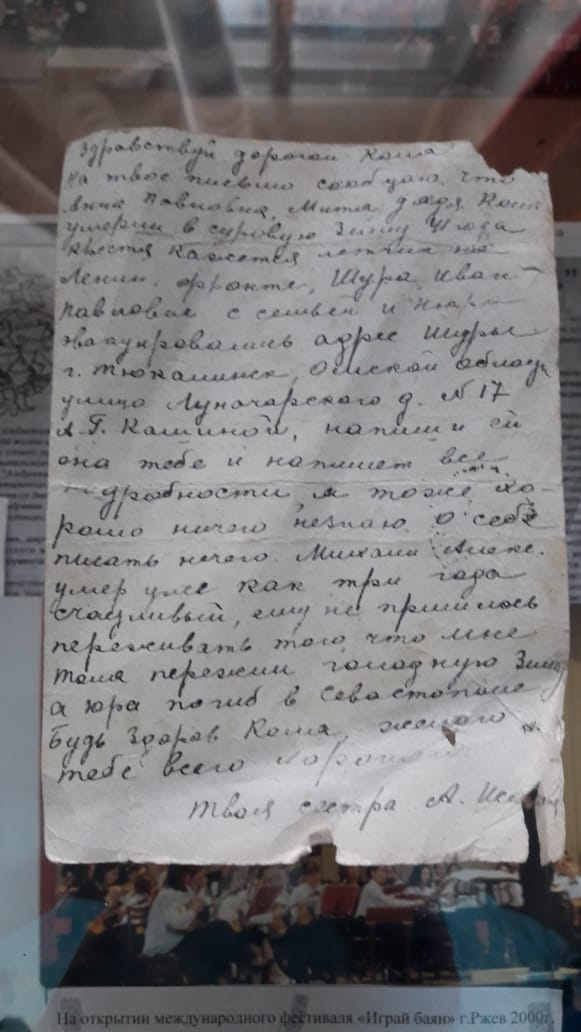 Здравствуй дорогой Коля
На твое письмо сообщаю, что
Анна Павловна, Митя, дядя Коля
умерли в суровую зиму
кажется летчик на
Ленин. фронте, Шура, Иван
Павлович с семьей и Нюра
эвакуировались адрес Шуры
г. Тюкалинск, Омской области
улица Луначарского д. N 17
А.Г. Кашиной, напиши ей
она тебе и напишет все
подробности, я тоже хо-
рошо ничего незнаю, о себе
писать нечего. Михаил Алекс.
умер уже как три года
счасливый, ему не пришлось
переживать того, что мне
Толя пережил голодную зиму
а Юра погиб в Севастополе
Будь здоров Коля, желаю
тебе всего хорошего
Твоя сестра А.
На открытии международного фестиваля «Играй баян» г.Ржев 2000г.